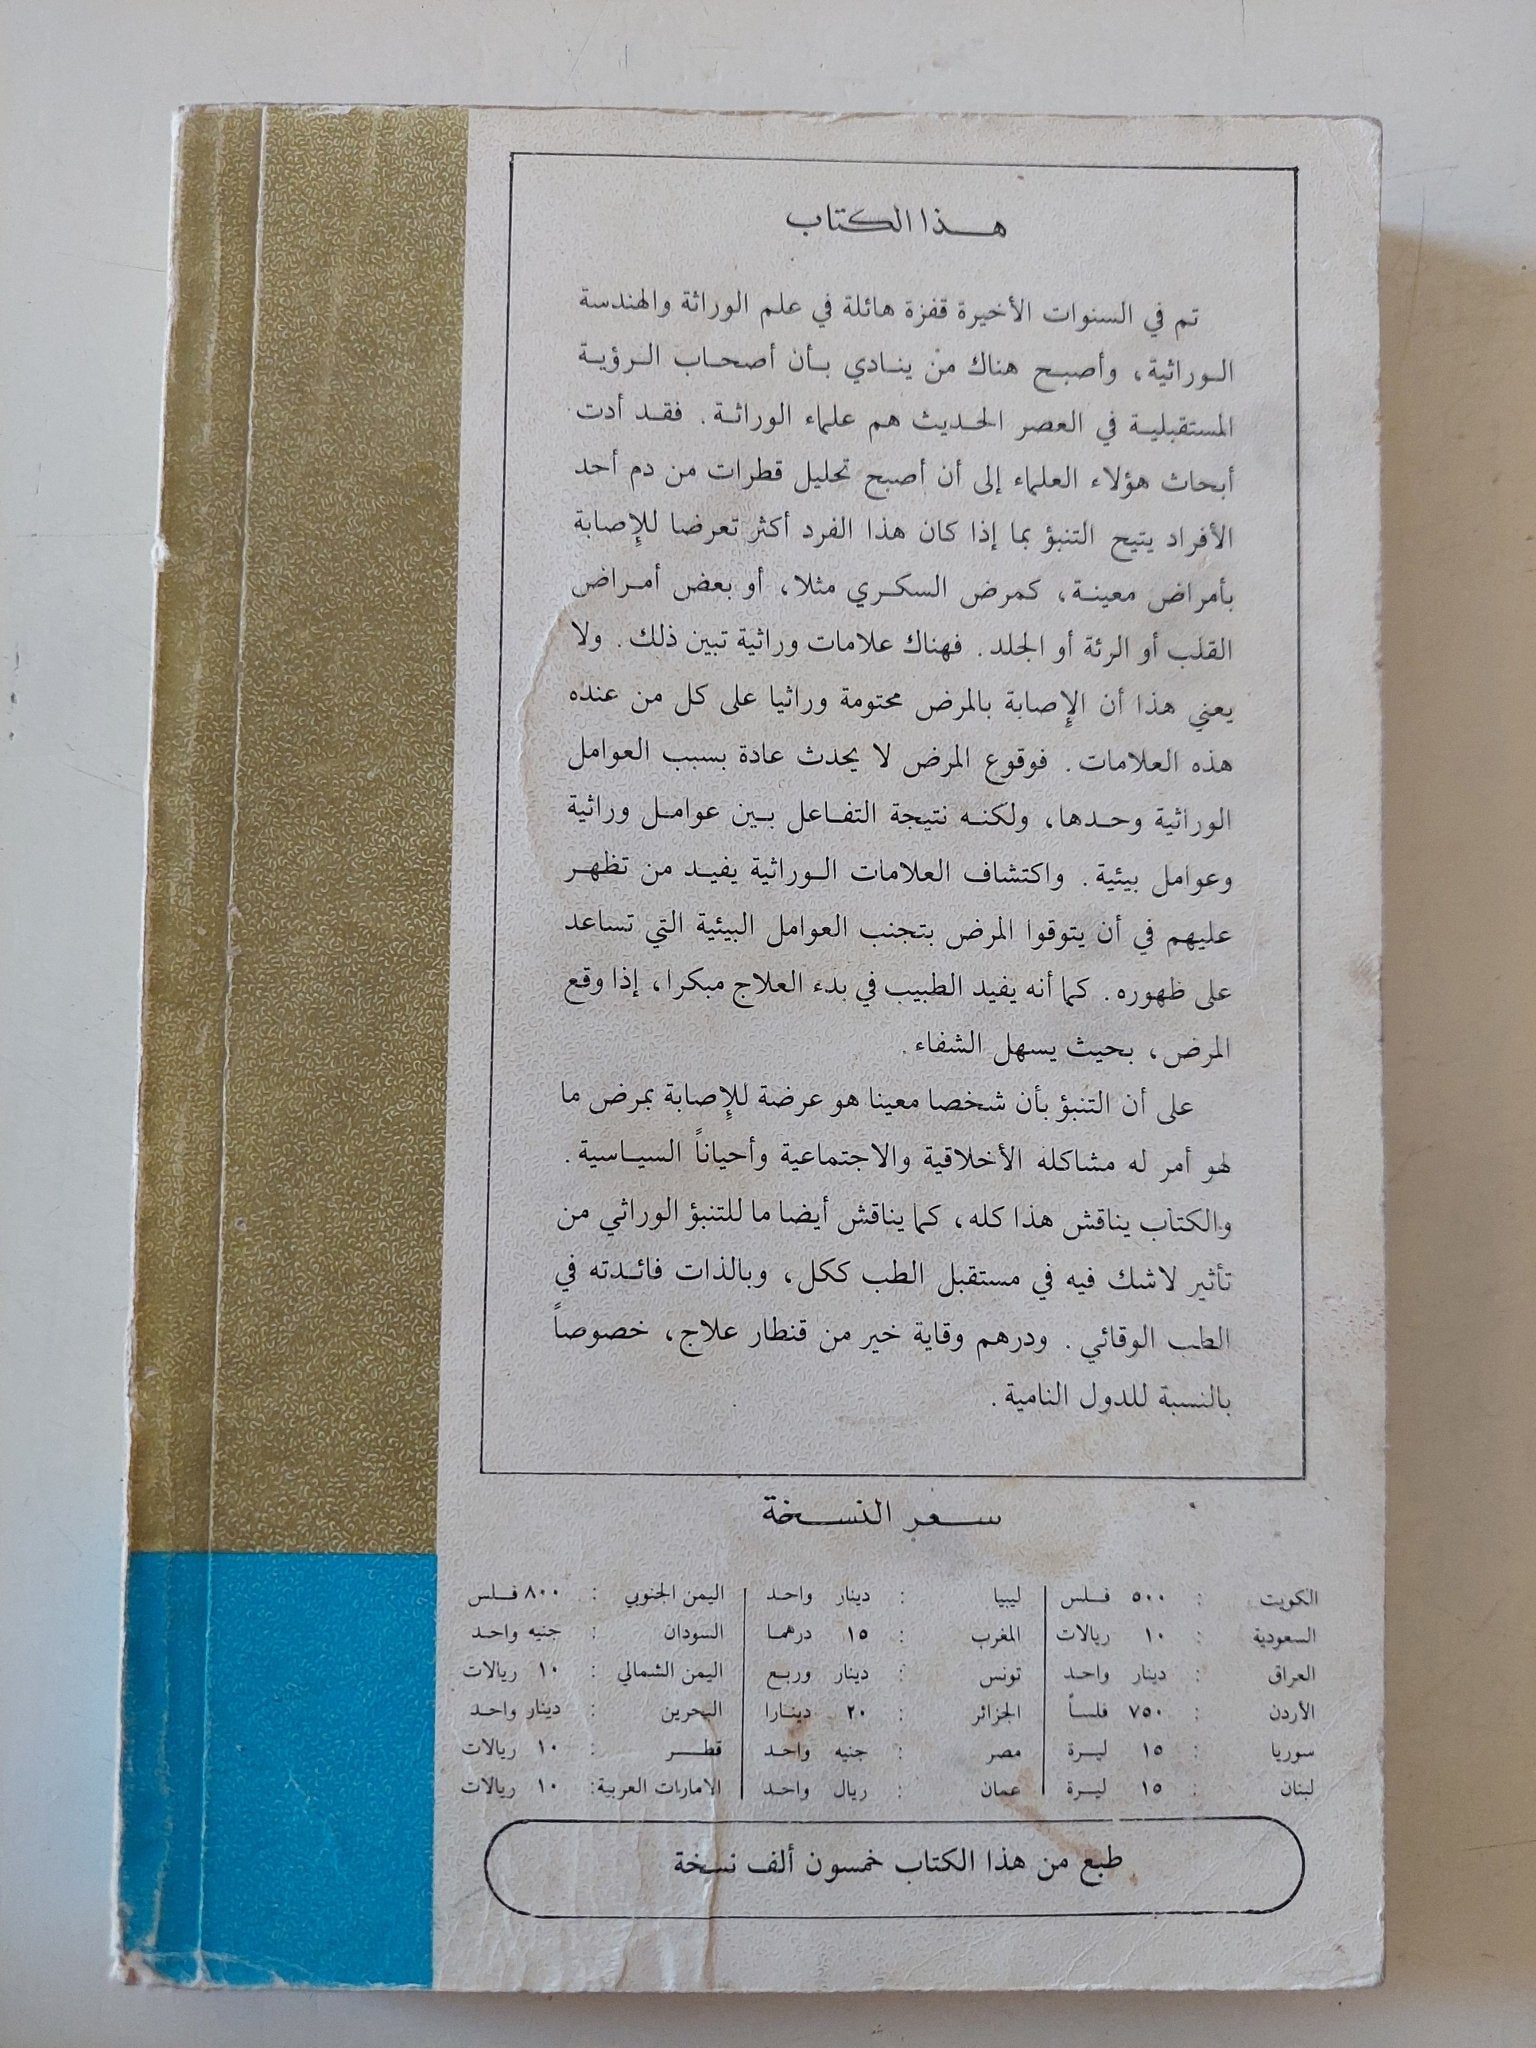 هذا الكتاب
تم في السنوات الأخيرة قفزة هائلة في علم الوراثة والهندسة
الوراثية، وأصبح هناك من ينادي بأن أصحاب الرؤية
المستقبلية في العصر الحديث هم علماء الوراثة. فقد أدت
أبحاث هؤلاء العلماء إلى أن أصبح تحليل قطرات من دم أحد
الأفراد يتيح التنبؤ بما إذا كان هذا الفرد أكثر تعرضا للإصابة
بأمراض معينة، كمرض السكري مثلا، أو بعض أمراض
القلب أو الرئة أو الجلد. فهناك علامات وراثية تبين ذلك. ولا
يعني هذا أن الإصابة بالمرض محتومة وراثيا على كل من عنده
هذه العلامات. فوقوع المرض لا يحدث عادة بسبب العوامل
الوراثية وحدها، ولكنه نتيجة التفاعل بين عوامل وراثية
وعوامل بيئية. واكتشاف العلامات الوراثية يفيد من تظهر
عليهم في أن يتوقوا المرض بتجنب العوامل البيئية التي تساعد
على ظهوره. كما أنه يفيد الطبيب في بدء العلاج مبكرا، إذا وقع
المرض، بحيث يسهل الشفاء.
على أن التنبؤ بأن شخصا معينا هو عرضة للإصابة بمرض ما
لهو أمر له مشاكله الأخلاقية والاجتماعية وأحياناً السياسية.
والكتاب يناقش هذا كله، كما يناقش أيضا ما للتنبؤ الوراثي من
تأثير لاشك فيه في مستقبل الطب ككل، وبالذات فائدته في
الطب الوقائي. ودرهم وقاية خير من قنطار علاج، خصوصاً
بالنسبة للدول النامية.
سعر النسخة
الكويت : ٥٠٠ فلس ليبيا : دينار واحد اليمن الجنوبي : ٨٠٠ فلس
السعودية : ١٠ ريالات المغرب : ١٥ درهما السودان : جنيه واحد
العراق : دينار واحد تونس : دينار وربع اليمن الشمالي : ١٠ ريالات
الأردن : ٧٥٠ فلساً الجزائر : ٢٠ دينارا البحرين : دينار واحد
سوريا : ١٥ ليرة مصر : جنيه واحد قطر : ١٠ ريالات
لبنان : ١٥ ليرة عمان : ريال واحد الامارات العربية: ١٠ ريالات
طبع من هذا الكتاب خمسون ألف نسخة